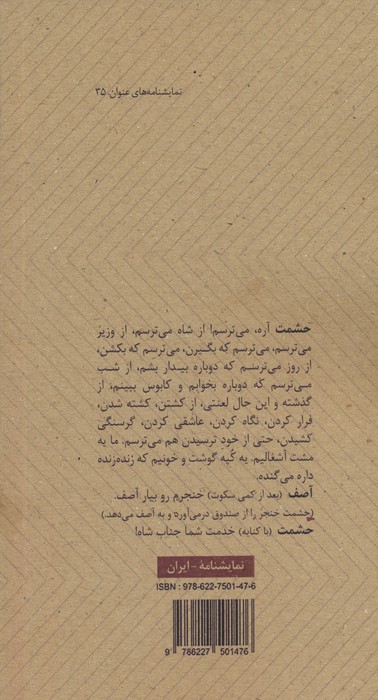 نمایشنامه‌های عنوان، ۳۵
حشمت آره، می‌ترسم! از شاه می‌ترسم، از وزیر
می‌ترسم، می‌ترسم که بگیرن، می‌ترسم که بکشن،
از روز می‌ترسم که دوباره بیدار بشم، از شب
می‌ترسم که دوباره بخوابم و کابوس ببینم، از
گذشته و این حال لعنتی، از کشتن، کشته شدن،
فرار کردن، نگاه کردن، عاشقی کردن، گرسنگی
کشیدن، حتی از خود ترسیدن هم می‌ترسم. ما یه
مشت آشغالیم. یه کُپه گوشت و خونیم که زنده‌زنده
داره می‌گنده.
آصف (بعد از کمی سکوت) خنجرم رو بیار آصف.
(حشمت خنجر را از صندوق درمی‌آورد و به آصف می‌دهد.)
حشمت (با کنایه) خدمت شما جناب شاه!
نمایشنامهٔ - ایران
ISBN : 978-622-7501-47-6
9 786227 501476